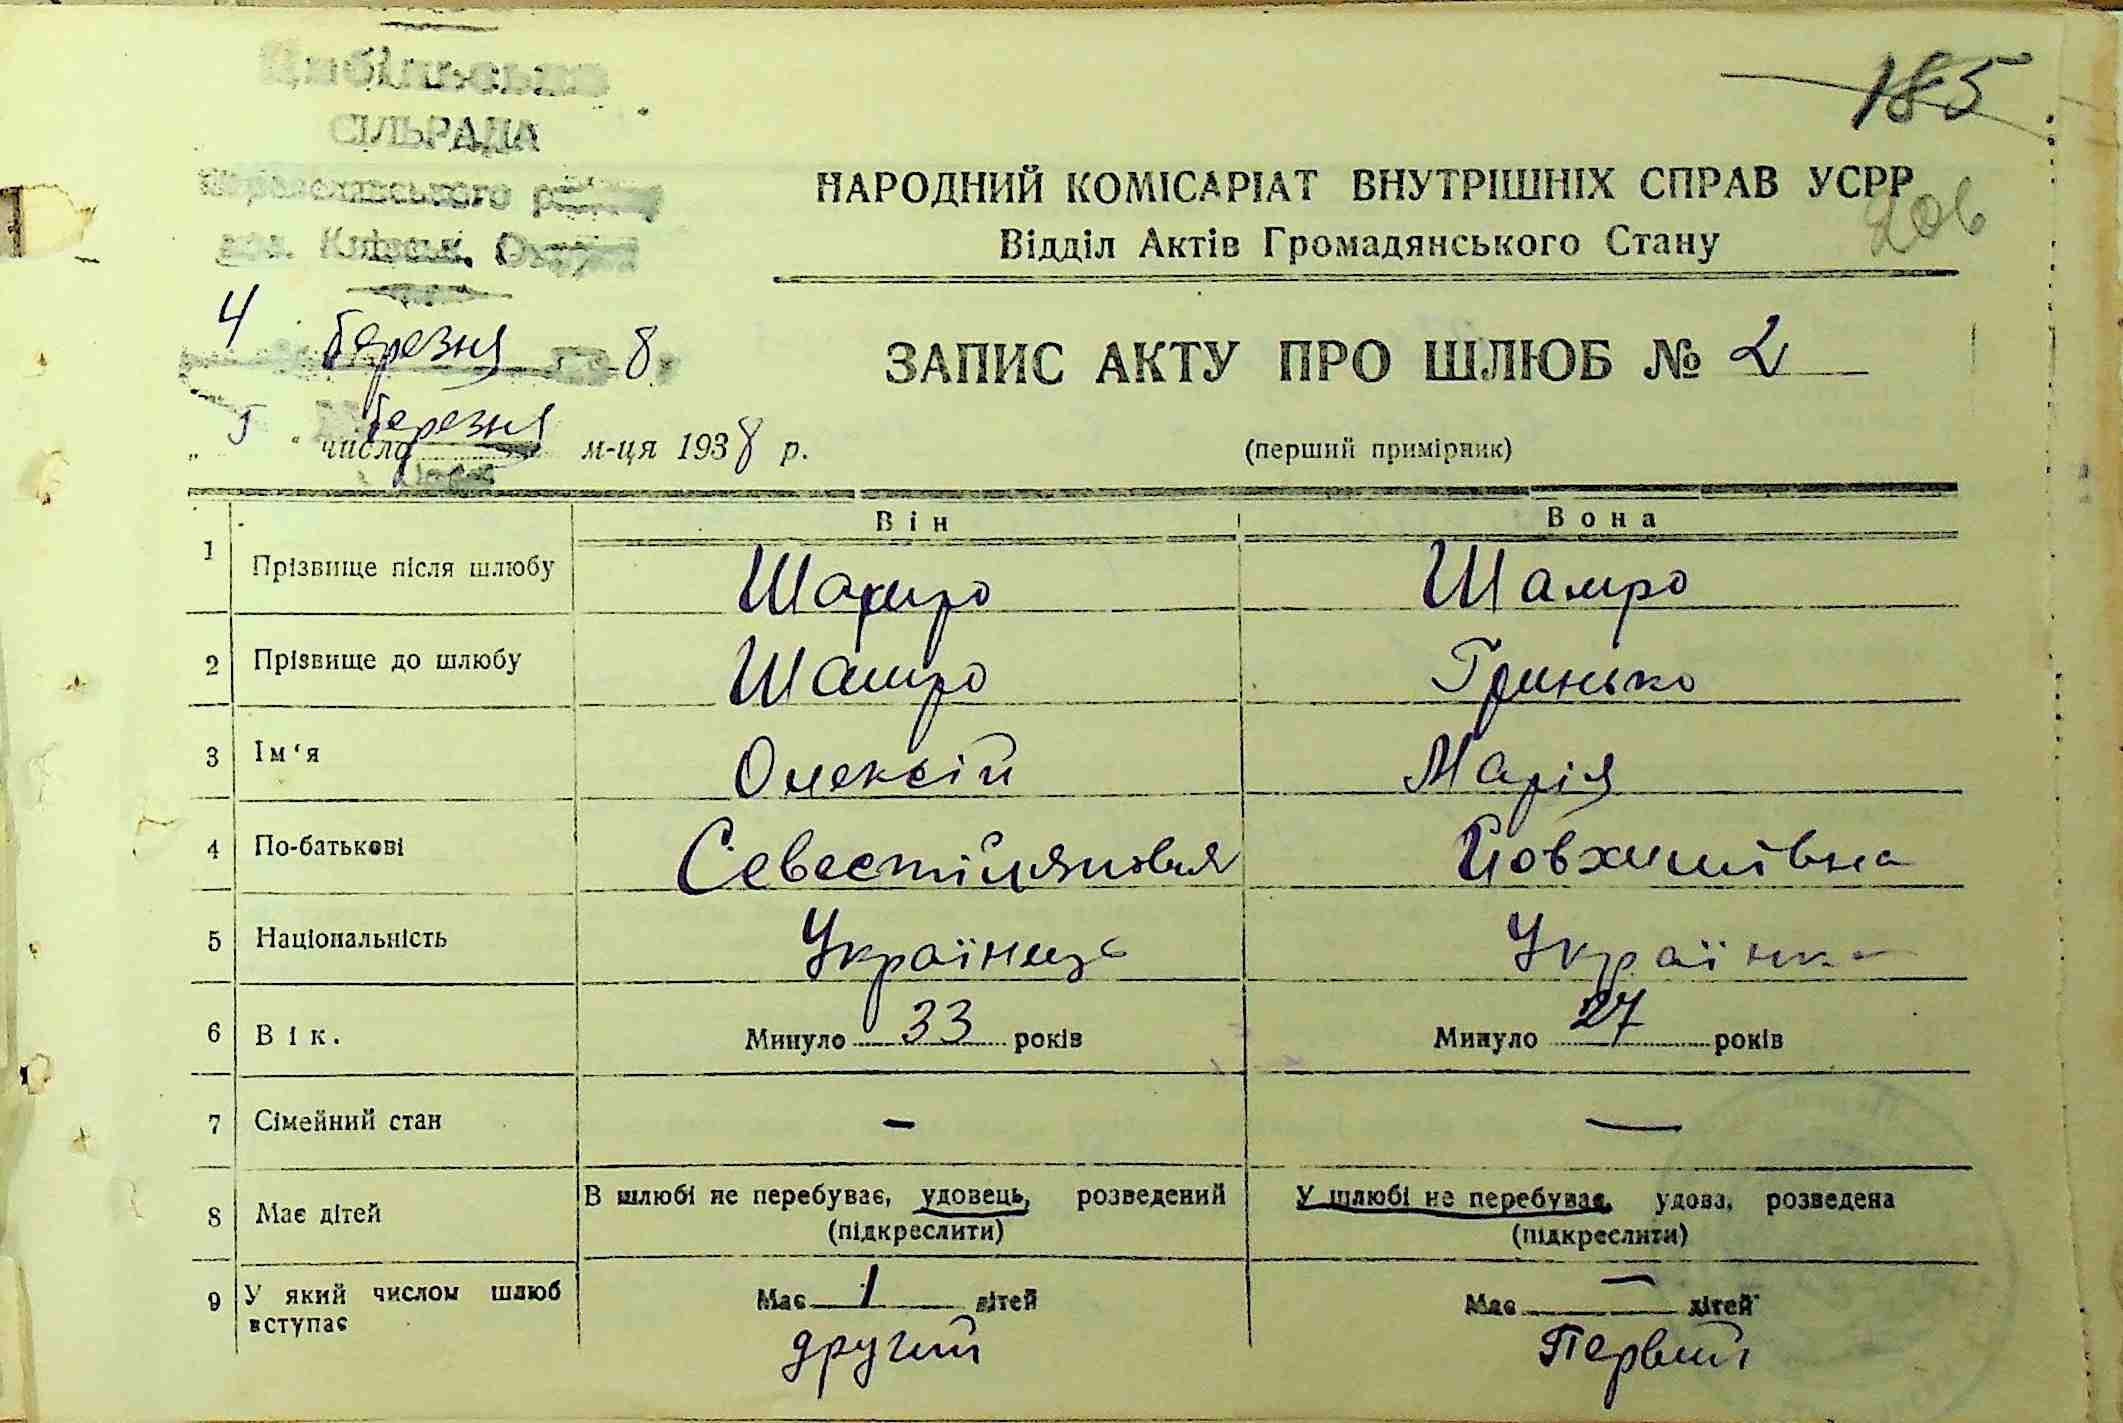 Цибільська
СІЛЬРАДА
185
НАРОДНИЙ КОМІСАРІАТ ВНУТРІШНІХ СПРАВ УСРР
206
Відділ Актів Громадянського Стану
4 березня 8
ЗАПИС АКТУ ПРО ШЛЮБ № 2
„ 5 " числа березня м-ця 1938 р.
(перший примірник)
Він Вона
1 Прізвище після шлюбу Шамро Шамро
2 Прізвище до шлюбу Шамро Гринько
3 Ім‘я Олексій Марія
4 По-батькові Йовхимівна
5 Національність Українець Українка
6 Вік. Минуло 33 років Минуло 27 років
7 Сімейний стан — —
8 Має дітей В шлюбі не перебуває, удовець, розведений У шлюбі не перебуває, удова, розведена
(підкреслити) (підкреслити)
9 У який числом шлюб вступає Має 1 дітей Має — дітей
другий Первий